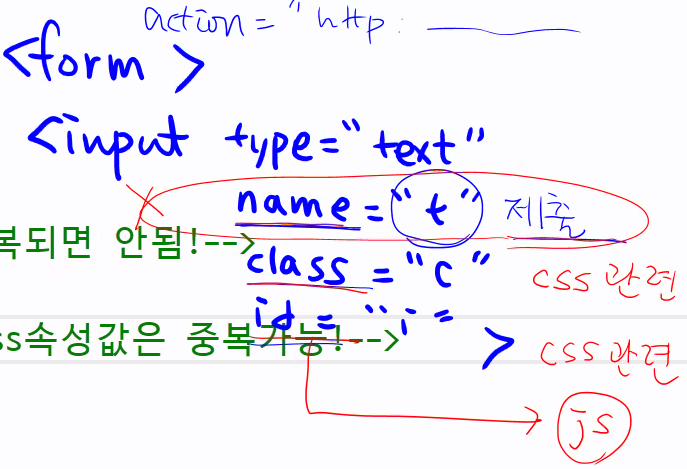 action = "http:
<form >
<input type="text"
name = "t" 제출
복되면 안됨!-->
class = "c"
css 관련
id = "i"
ss속성값은 중복가능!-->
>
css 관련
js